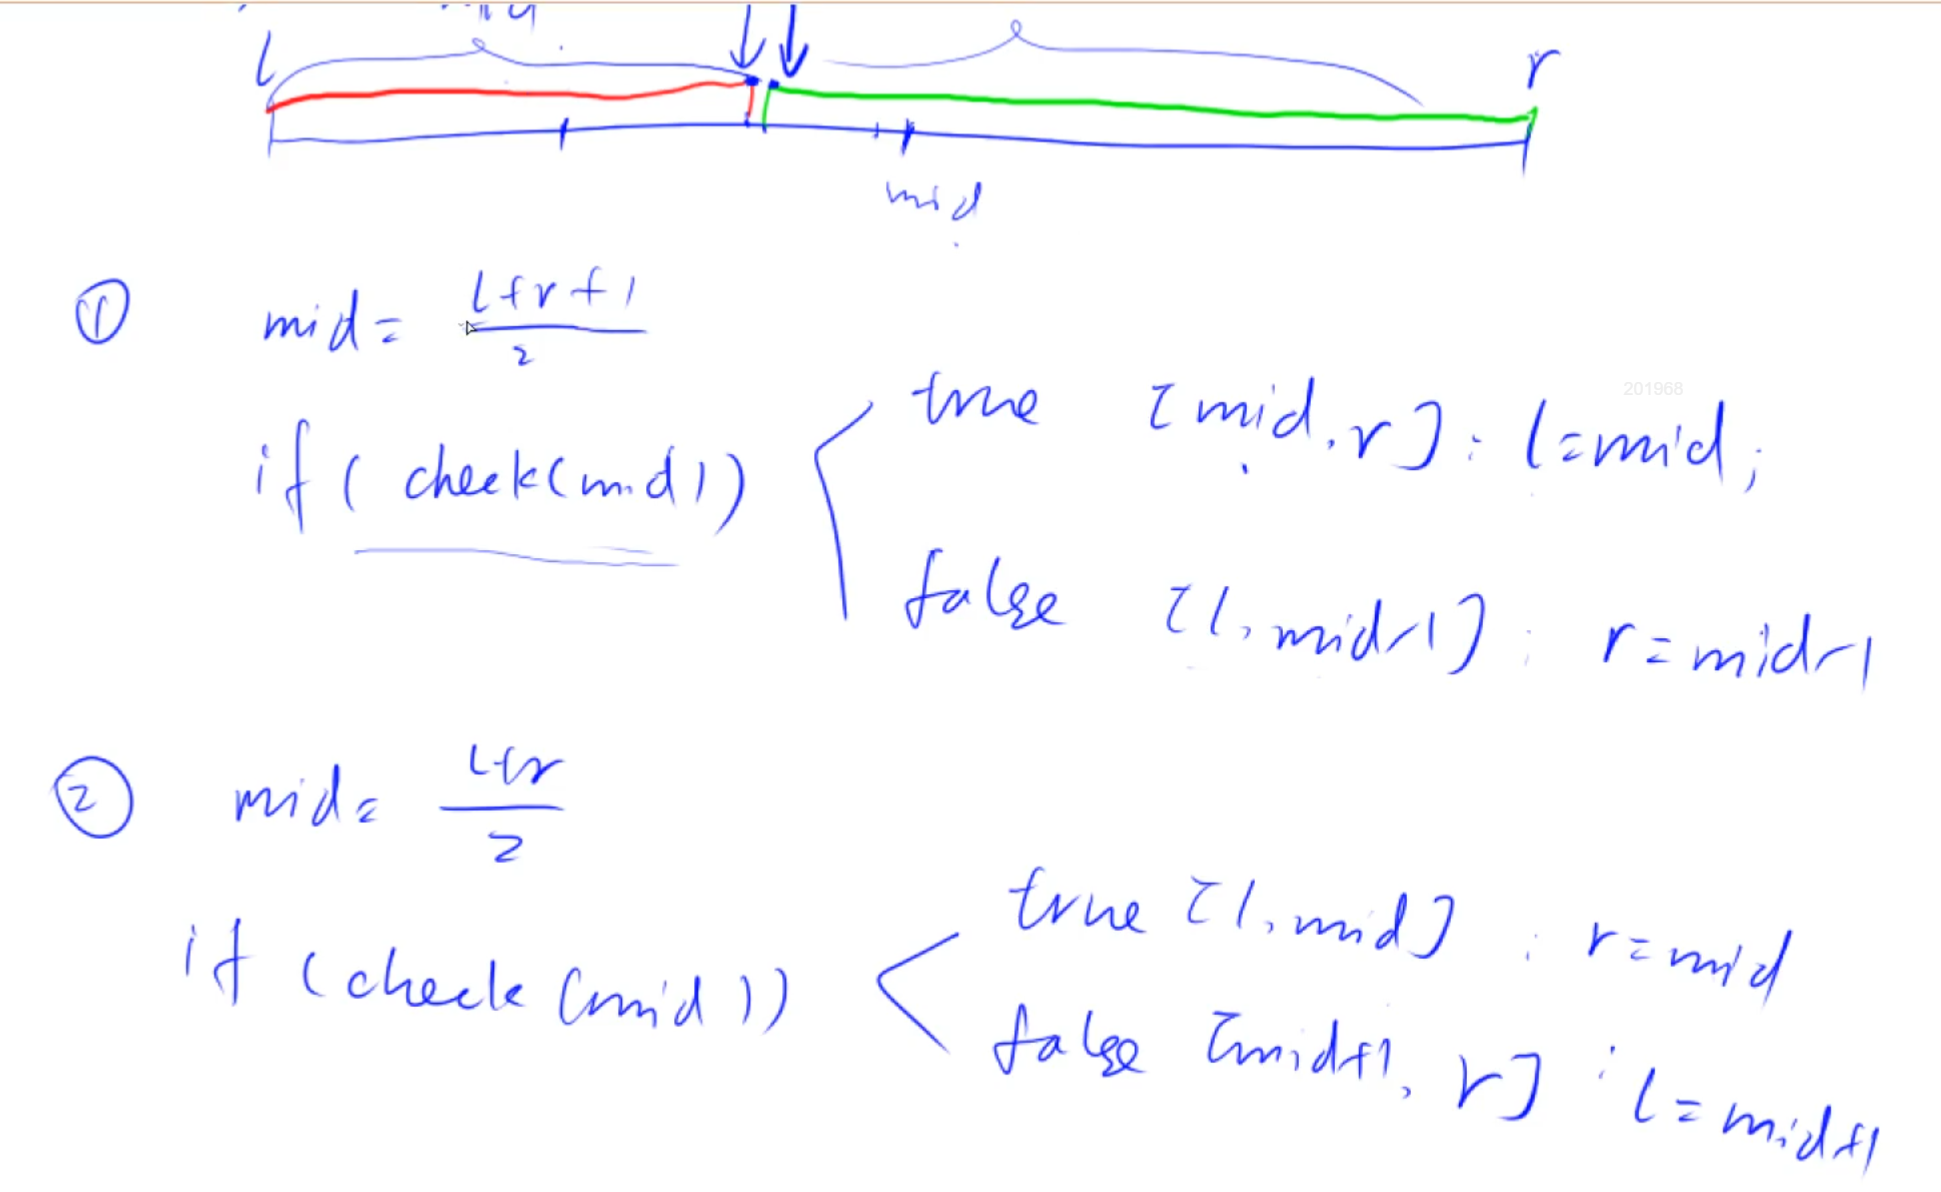 l r
mid
① mid = l+r+1
2
201968
if ( check(mid)) true [mid, r] : l=mid;
false [l, mid-1] : r=mid-1
② mid = l+r
2
if (check (mid)) true [l, mid] : r=mid
false [mid+1, r] : l=mid+1